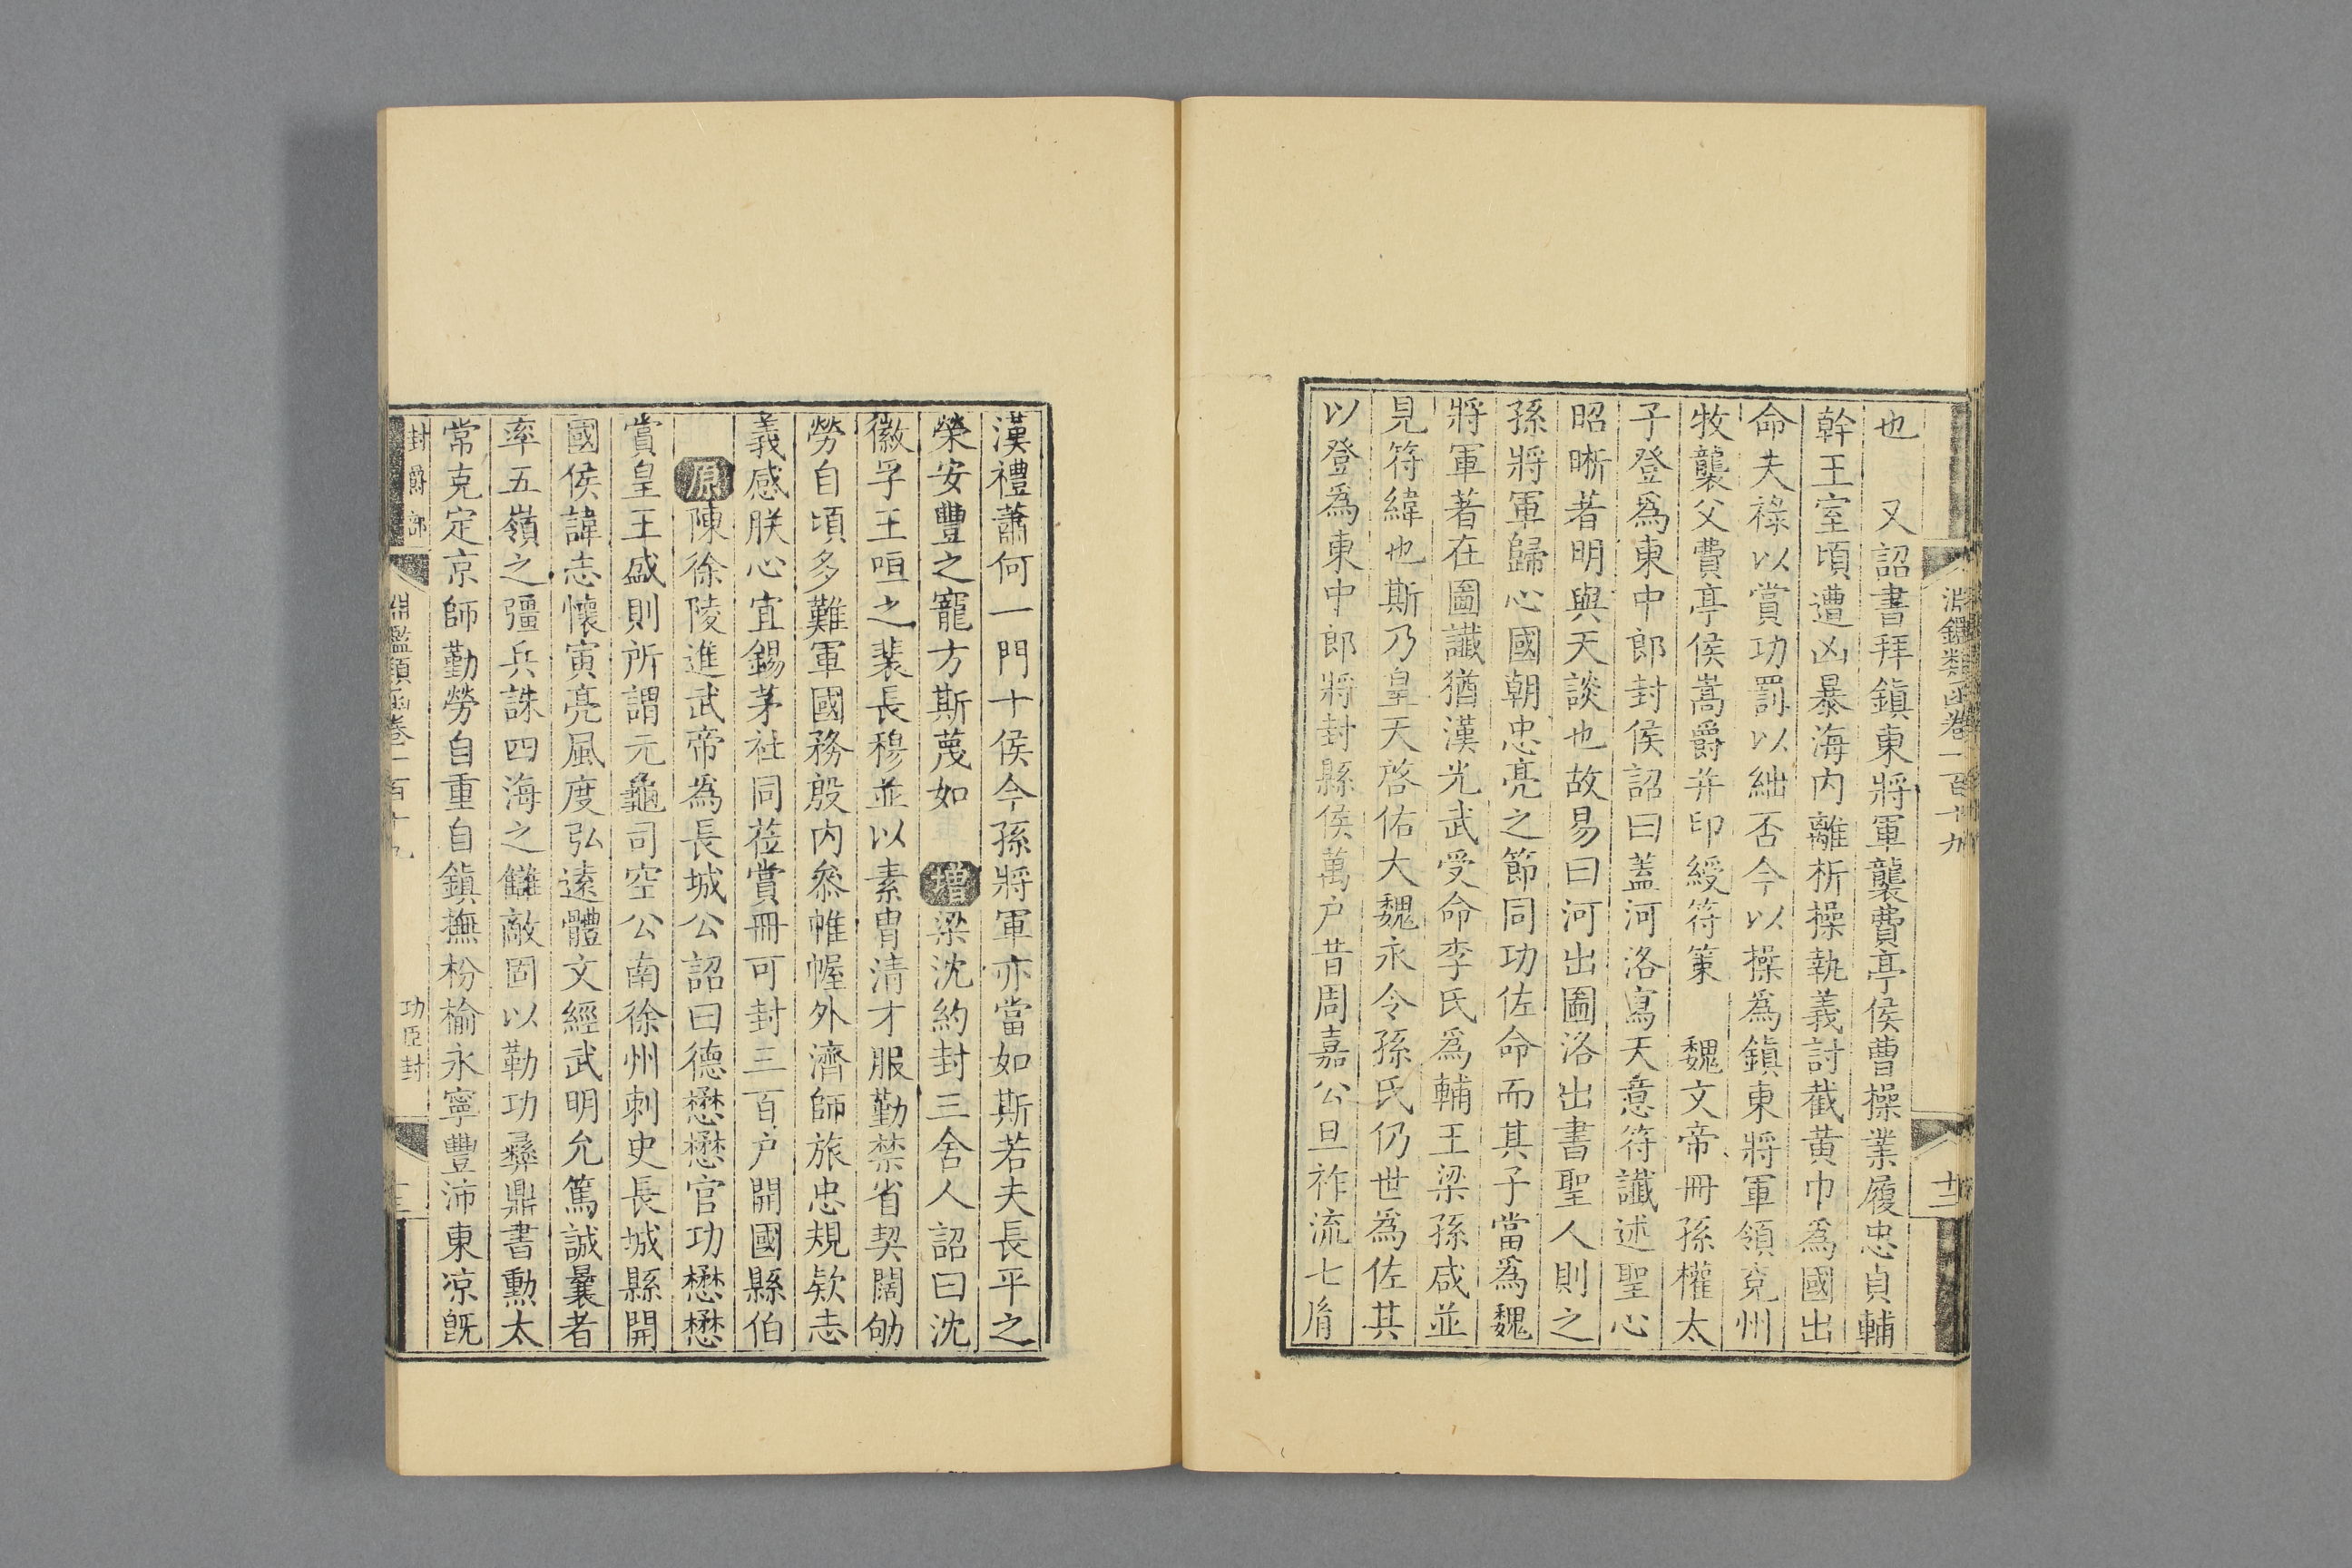 淵鑑類函卷一百十九
十二
也　又詔書拜鎮東將軍襲費亭侯曹操業履忠貞輔
幹王室頃遭凶暴海内離析操執義討截黃巾為國出
命夫祿以賞功罰以絀否今以操為鎮東將軍領兗州
牧襲父費亭侯嵩爵并印綬符策　魏文帝冊孫權太
子登爲東中郎封侯詔曰蓋河洛寫天意符讖述聖心
昭晰著明與天談也故易曰河出圖洛出書聖人則之
孫將軍歸心國朝忠亮之節同功佐命而其子當爲魏
將軍著在圖讖猶漢光武受命李氏爲輔王梁孫咸並
見符緯也斯乃皇天啓佑大魏永令孫氏仍世爲佐其
以登爲東中郎將封縣侯萬户昔周嘉公旦祚流七胤
漢禮蕭何一門十侯今孫將軍亦當如斯若夫長平之
榮安豐之寵方斯蔑如　增梁沈約封三舍人詔曰沈
徽孚王咺之裴長穆並以素胄清才服勤禁省契闊劬
勞自頃多難軍國務殷内叅帷幄外濟師旅忠規欵志
義感朕心宜錫茅社同莅賞冊可封三百户開國縣伯
原陳徐陵進武帝為長城公詔曰德懋懋官功懋懋
賞皇王盛則所謂元龜司空公南徐州刺史長城縣開
國侯諱志懷寅亮風度弘遠體文經武明允篤誠曩者
率五嶺之彊兵誅四海之讎敵固以勒功彞鼎書勳太
常克定京師勤勞自重自鎮撫枌榆永寧豐沛東凉旣
封爵部
淵鑑類函卷一百十九
功臣封